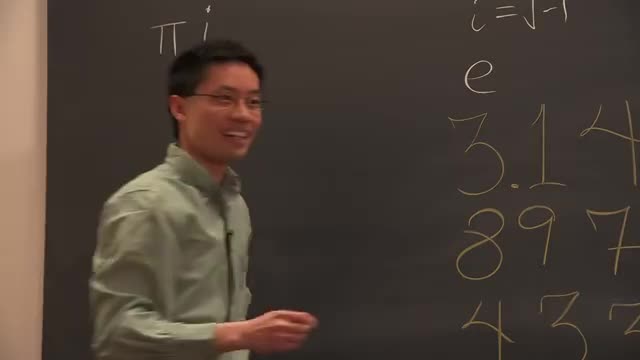 π i
i = √-1
e
3.14
897
433